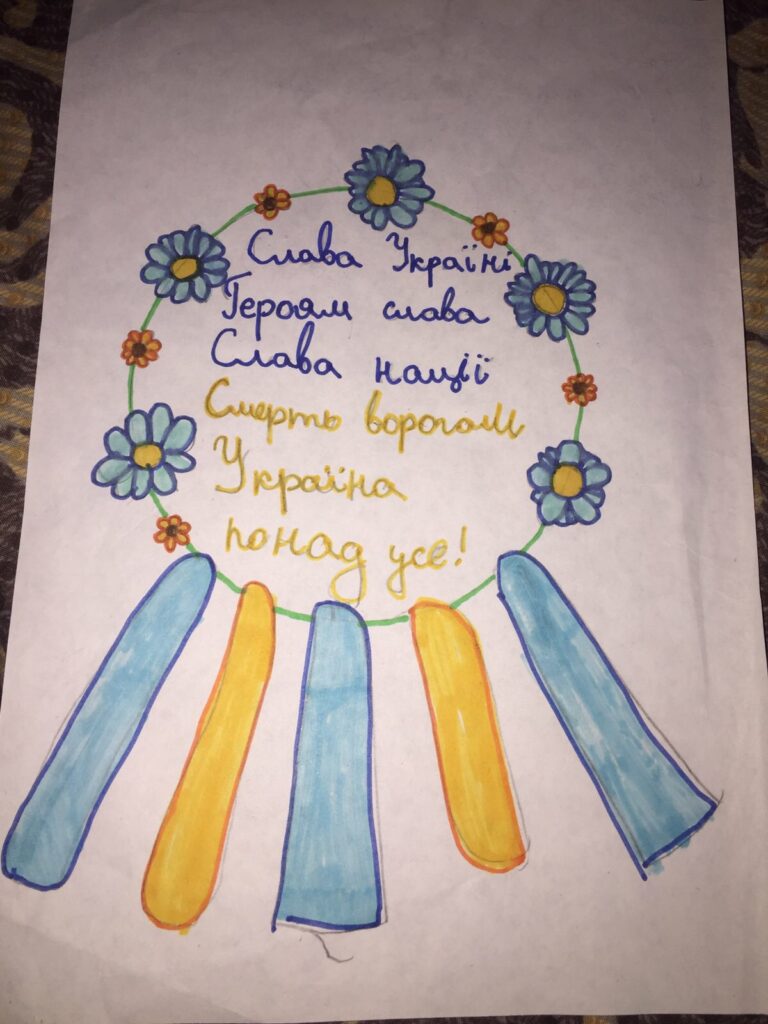 Слава Україні
Героям слава
Слава нації
Смерть ворогам
Україна
понад усе!